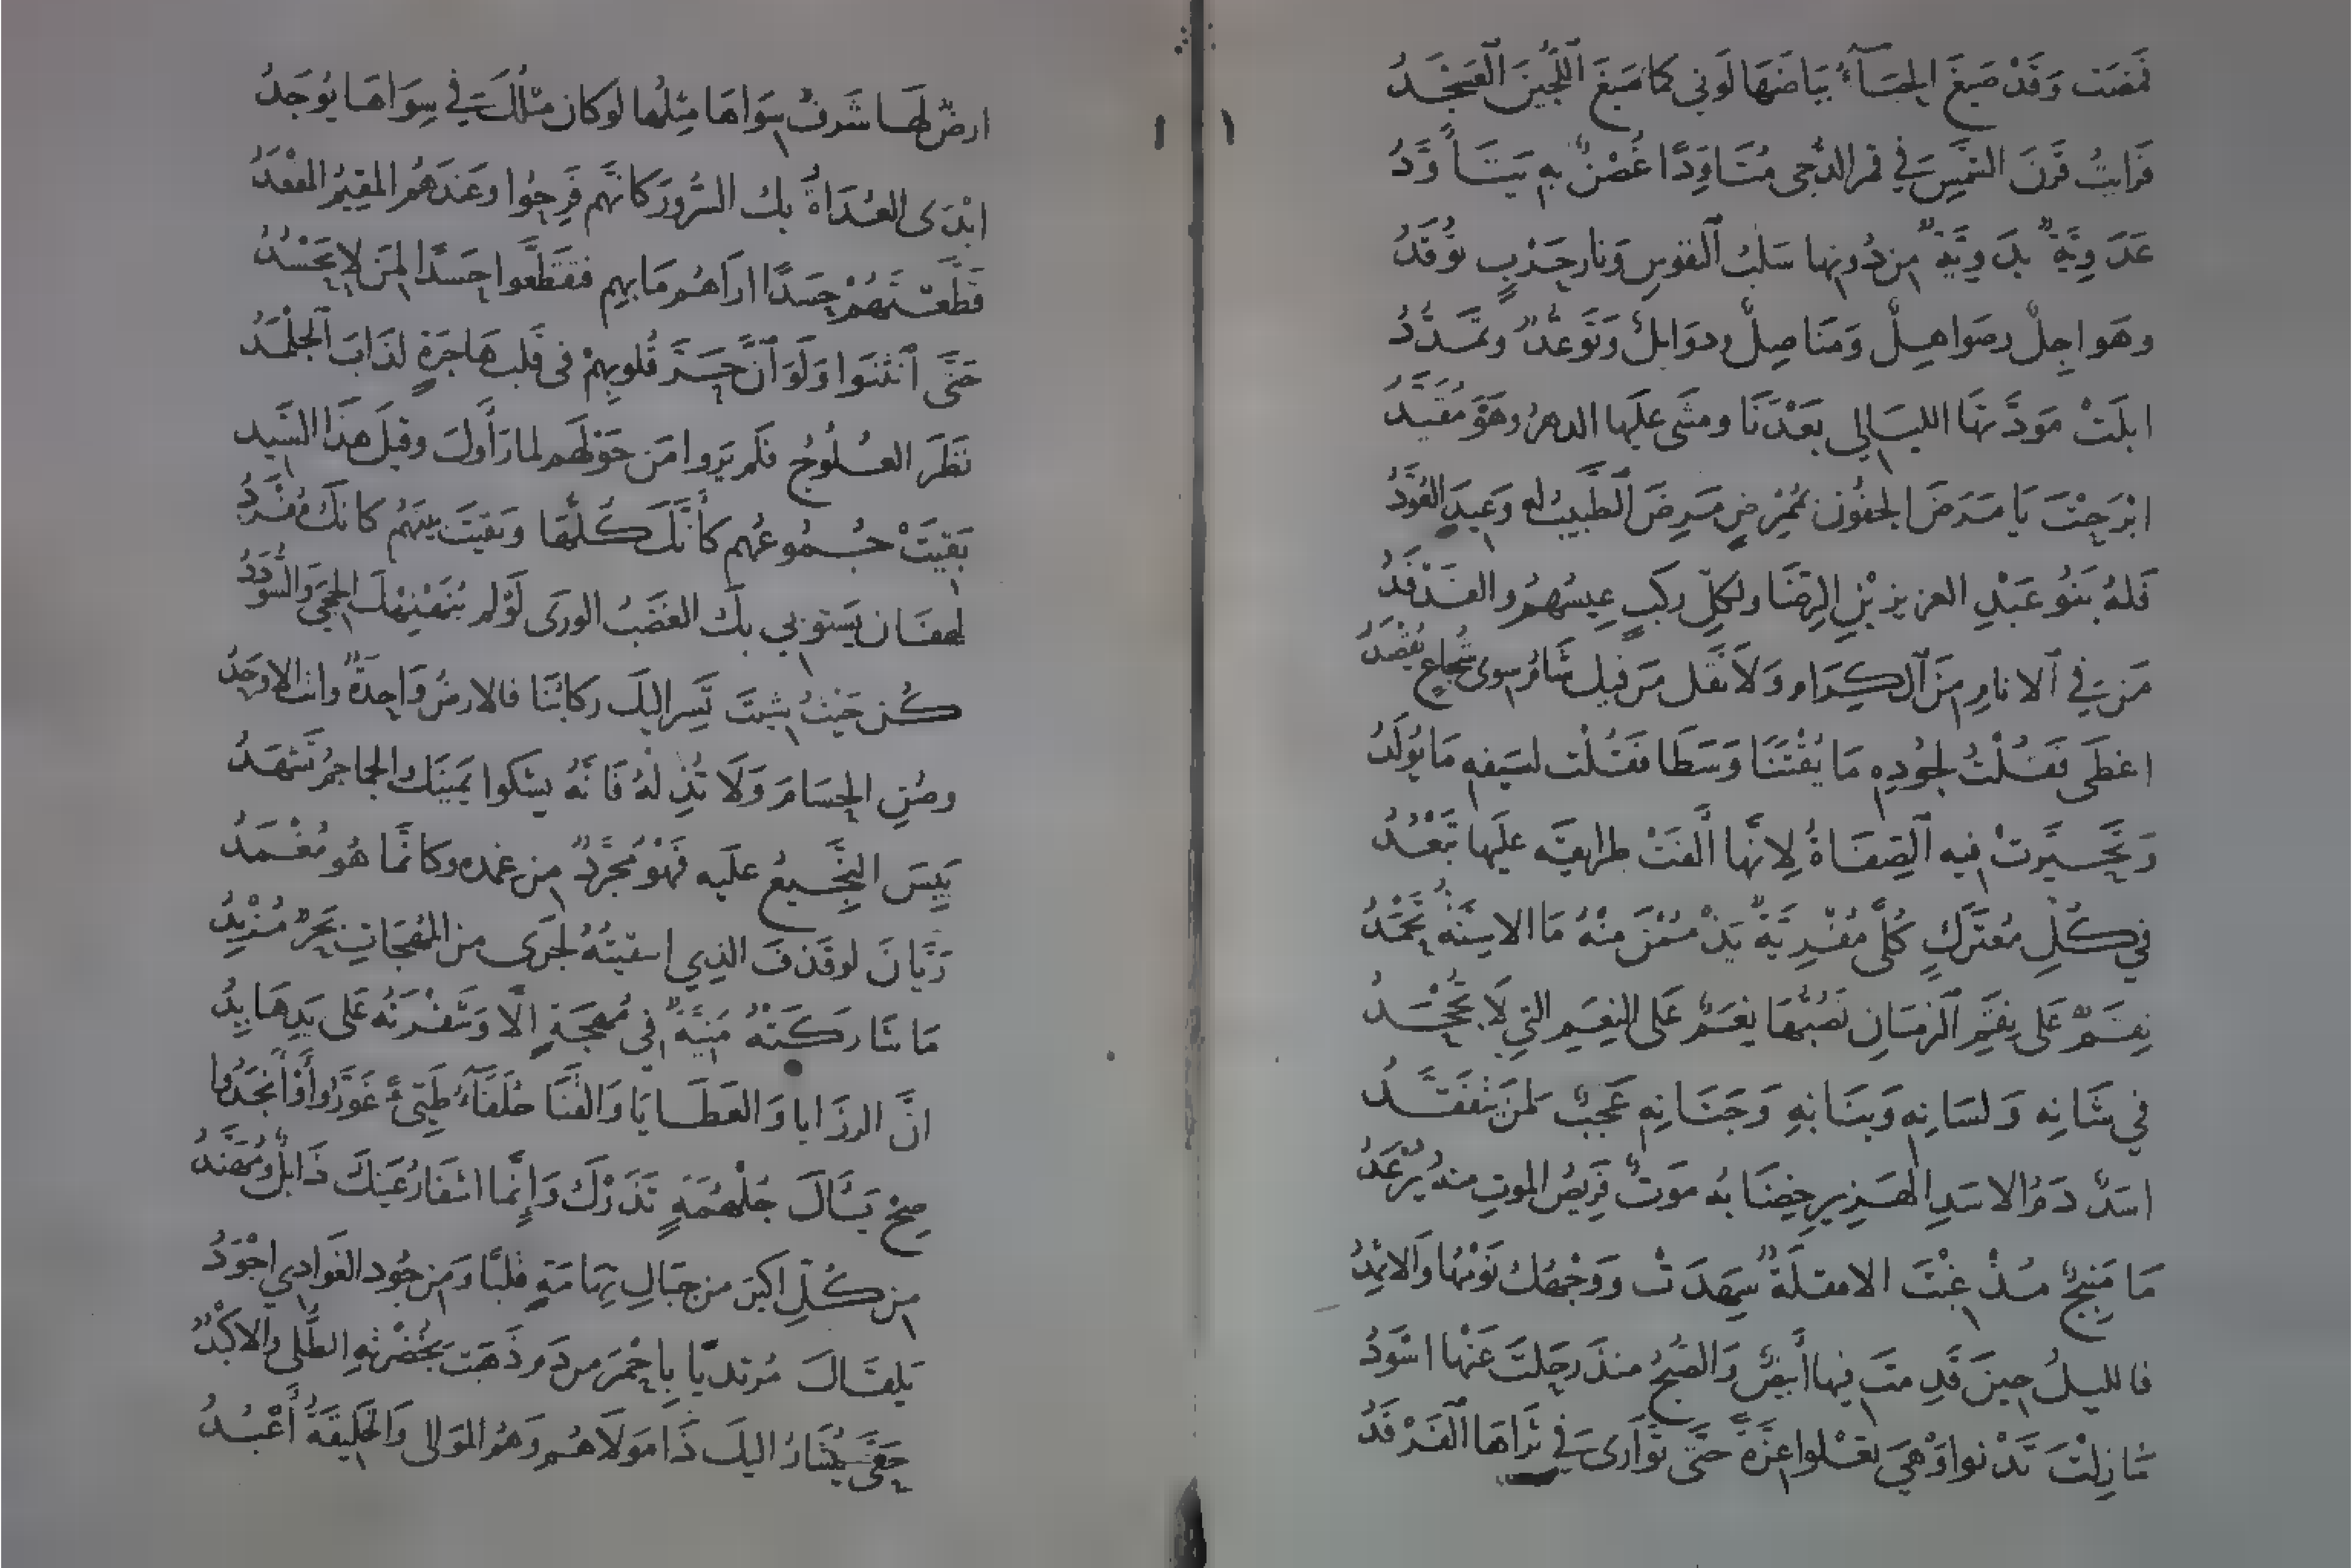 فَمَضَت وَقَدْ صَبَغَ الحَيَاءُ بَيَاضَهَا لَوني كما صَبَغَ اللُّجَينَ العَسْجَدُ
فَرَايتُ قَرْنَ الشَّمسِ في قمر الدُّجى مُتَاوِّدًا غُصْنٌ بِهِ يَتَأَوَّدُ
عَدَوِيَّةٌ بَدَوِيَّةٌ مِن دُونِها سَلْبُ النفوسِ وَنارُ حَرْبٍ توُقَدُ
وهَواجِلٌ وصَواهِلٌ وَمَناصِلٌ وذوَابلٌ وَتَوَعُّدٌ وتَهَدُّدُ
ابلَتْ مَوَدَّتَهَا الليَالي بَعْدَنَا ومشَى علَيها الدهرُ وهَوَ مُقَيَّدُ
ابْرَحْتَ يَا مَرَضَ الجفُون بمُمْرِضٍ مَرِضَ الطَّبيبُ لهُ وَعِيدَ العُوَّدُ
فَلهُ بَنُو عَبْدِ العزيز بْنِ الرِّضَا ولكلِّ رَكبٍ عِيسُهُمُ والفَدْفَدُ
مَن في الانامِ مِنَ الكِرَامِ وَلَا تَقُل مَن فيك شَامُ سوى شُجاعٍ يُقْصَدُ
اعْطَى فَقُلْتُ لجُودِهِ مَا يُقْتَنَا وَسَطَا فَقُلْت لسَيفهِ مَا يُولَدُ
وَتَحَيَّرتْ فيه الصِّفَاةُ لِانَّها ألفَتْ طرايقَه علَيها تَبْعُدُ
في كُلِّ مُعْتَرَكٍ كُلًى مُفْرِيَّةٌ يَذْمُمْنَ مِنْهُ مَا الاسِنَّةُ تَحْمَدُ
نِقَمٌ عَلى نِقَمِ الزمَانِ تَصُبُّهَا نِعَمٌ عَلى النِعَمِ التي لَا تُجْحَدُ
في شَانِه وَلسَانِه وَبنَانِهِ وَجَنَانِهِ عَجَبٌ لمَن يَتَفَقَّدُ
اسَدٌ دَمُ الاسَدِ الهِزِبرِ خِضَابُهُ مَوتٌ فَرِيصُ الموتِ منهُ يُرْعَدُ
مَا مَنبِجٌ مُذْ غِبْتَ الا مقلَةٌ سَهِدَتْ وَوَجْهُكَ نَوْمُهَا وَالاثمِدُ
فالليلُ حِينَ قَدِمتَ فيها أبيَضٌ وَالصُّبْحُ منذ رحَلتَ عَنْها اسْوَدُ
مَا زِلْتَ تَدْنوا وَهْيَ تعْلوا عِزَّةً حَتَّى تَوَارى في ثَراهَا الفَرْقَدُ
ارضٌ لهَا شَرفٌ سِوَاهَا مِثلُها لوكان مثلُكَ في سِوَاهَا يُوجَدُ
ابْدَى العُدَاةُ بكَ السُّرُورَ كانَّهم فَرِحُوا وعندَهُمُ المُقِيمُ المُقْعِدُ
قَطَّعْتَهُمْ حَسَدًا ارَاهُم مَا بهِم فتَقَطَّعوا حَسَدًا لِمَن لا يَحْسُدُ
حَتَّى انْثَنَوا وَلَوَانَّ حَرَّ قُلُوبِهِمْ في قَلب هَاجِرَةٍ لذَابَ الجَلْمَدُ
نَظَرَ العُلُوجُ فلم يَرَوا مَن حَوْلهُم لما رَأَوكَ وقيلَ هَذا السَّيد
بَقِيَتْ جُمُوعُهُم كأنَّكَ كُلُّهَا وَبَقيتَ بينَهُم كانكَ مُفْرَدُ
لهفَان يَسْتَوبي بكَ الغَضَبُ الورَى لَوْ لم يُنَهْنِهْكَ الحِجَى وَالسُّودَدُ
كُن حَيْثُ شيتَ تَسِر اليكَ ركابُنَا فالارضُ وَاحِدَةٌ وانتَ الاوحَدُ
وصُنِ الحُسَامَ وَلَا تُذِلْهُ فَانَّهُ يشكوا يَمينَك الجماجمُ تَشْهَدُ
يَبِسَ النَّجِيعُ علَيه فَهْوَ مُجَرَّدٌ مِن غمدِه وكانَّما هُو مُغْمَدُ
رَيَّانَ لو قَذفَ الذي اسقيتهُ لجَرَى من المُهَجَاتِ بَحْرٌ مُزْبِدُ
مَا شَارَكَتْهُ مَنِيَّةٌ في مُهجَةٍ الَّا وَشَفْرَتُه عَلى يَدِهَا يدُ
انَّ الرزَايا وَالعَطَايَا وَالقَنَا حُلَفَاءُ طَيِّئٍ غَوَّرُوا أَوْ أَنْجَدُوا
صِحْ يَالَ جُلْهُمَةٍ تَذَرْكَ وَإِنَّما اشفَارُ عَينكَ ذَابلٌ وَمُهَنَّدُ
مِن كُلِّ اكبَرَ من جبَالِ تِهَامَةٍ قلبًا وَمِن جُود الغَوادي اجْوَدُ
يَلقَاكَ مُرتديًا بِاحْمَرَ من دَمٍ ذَهَبَت بخُضْرَتِهِ الطُّلى والاكْبُدُ
حَتَّى يُشَارُ اليكَ ذَا مَولَاهُم وَهُمُ المَوَالى وَالخَليقَةُ أَعْبُدُ